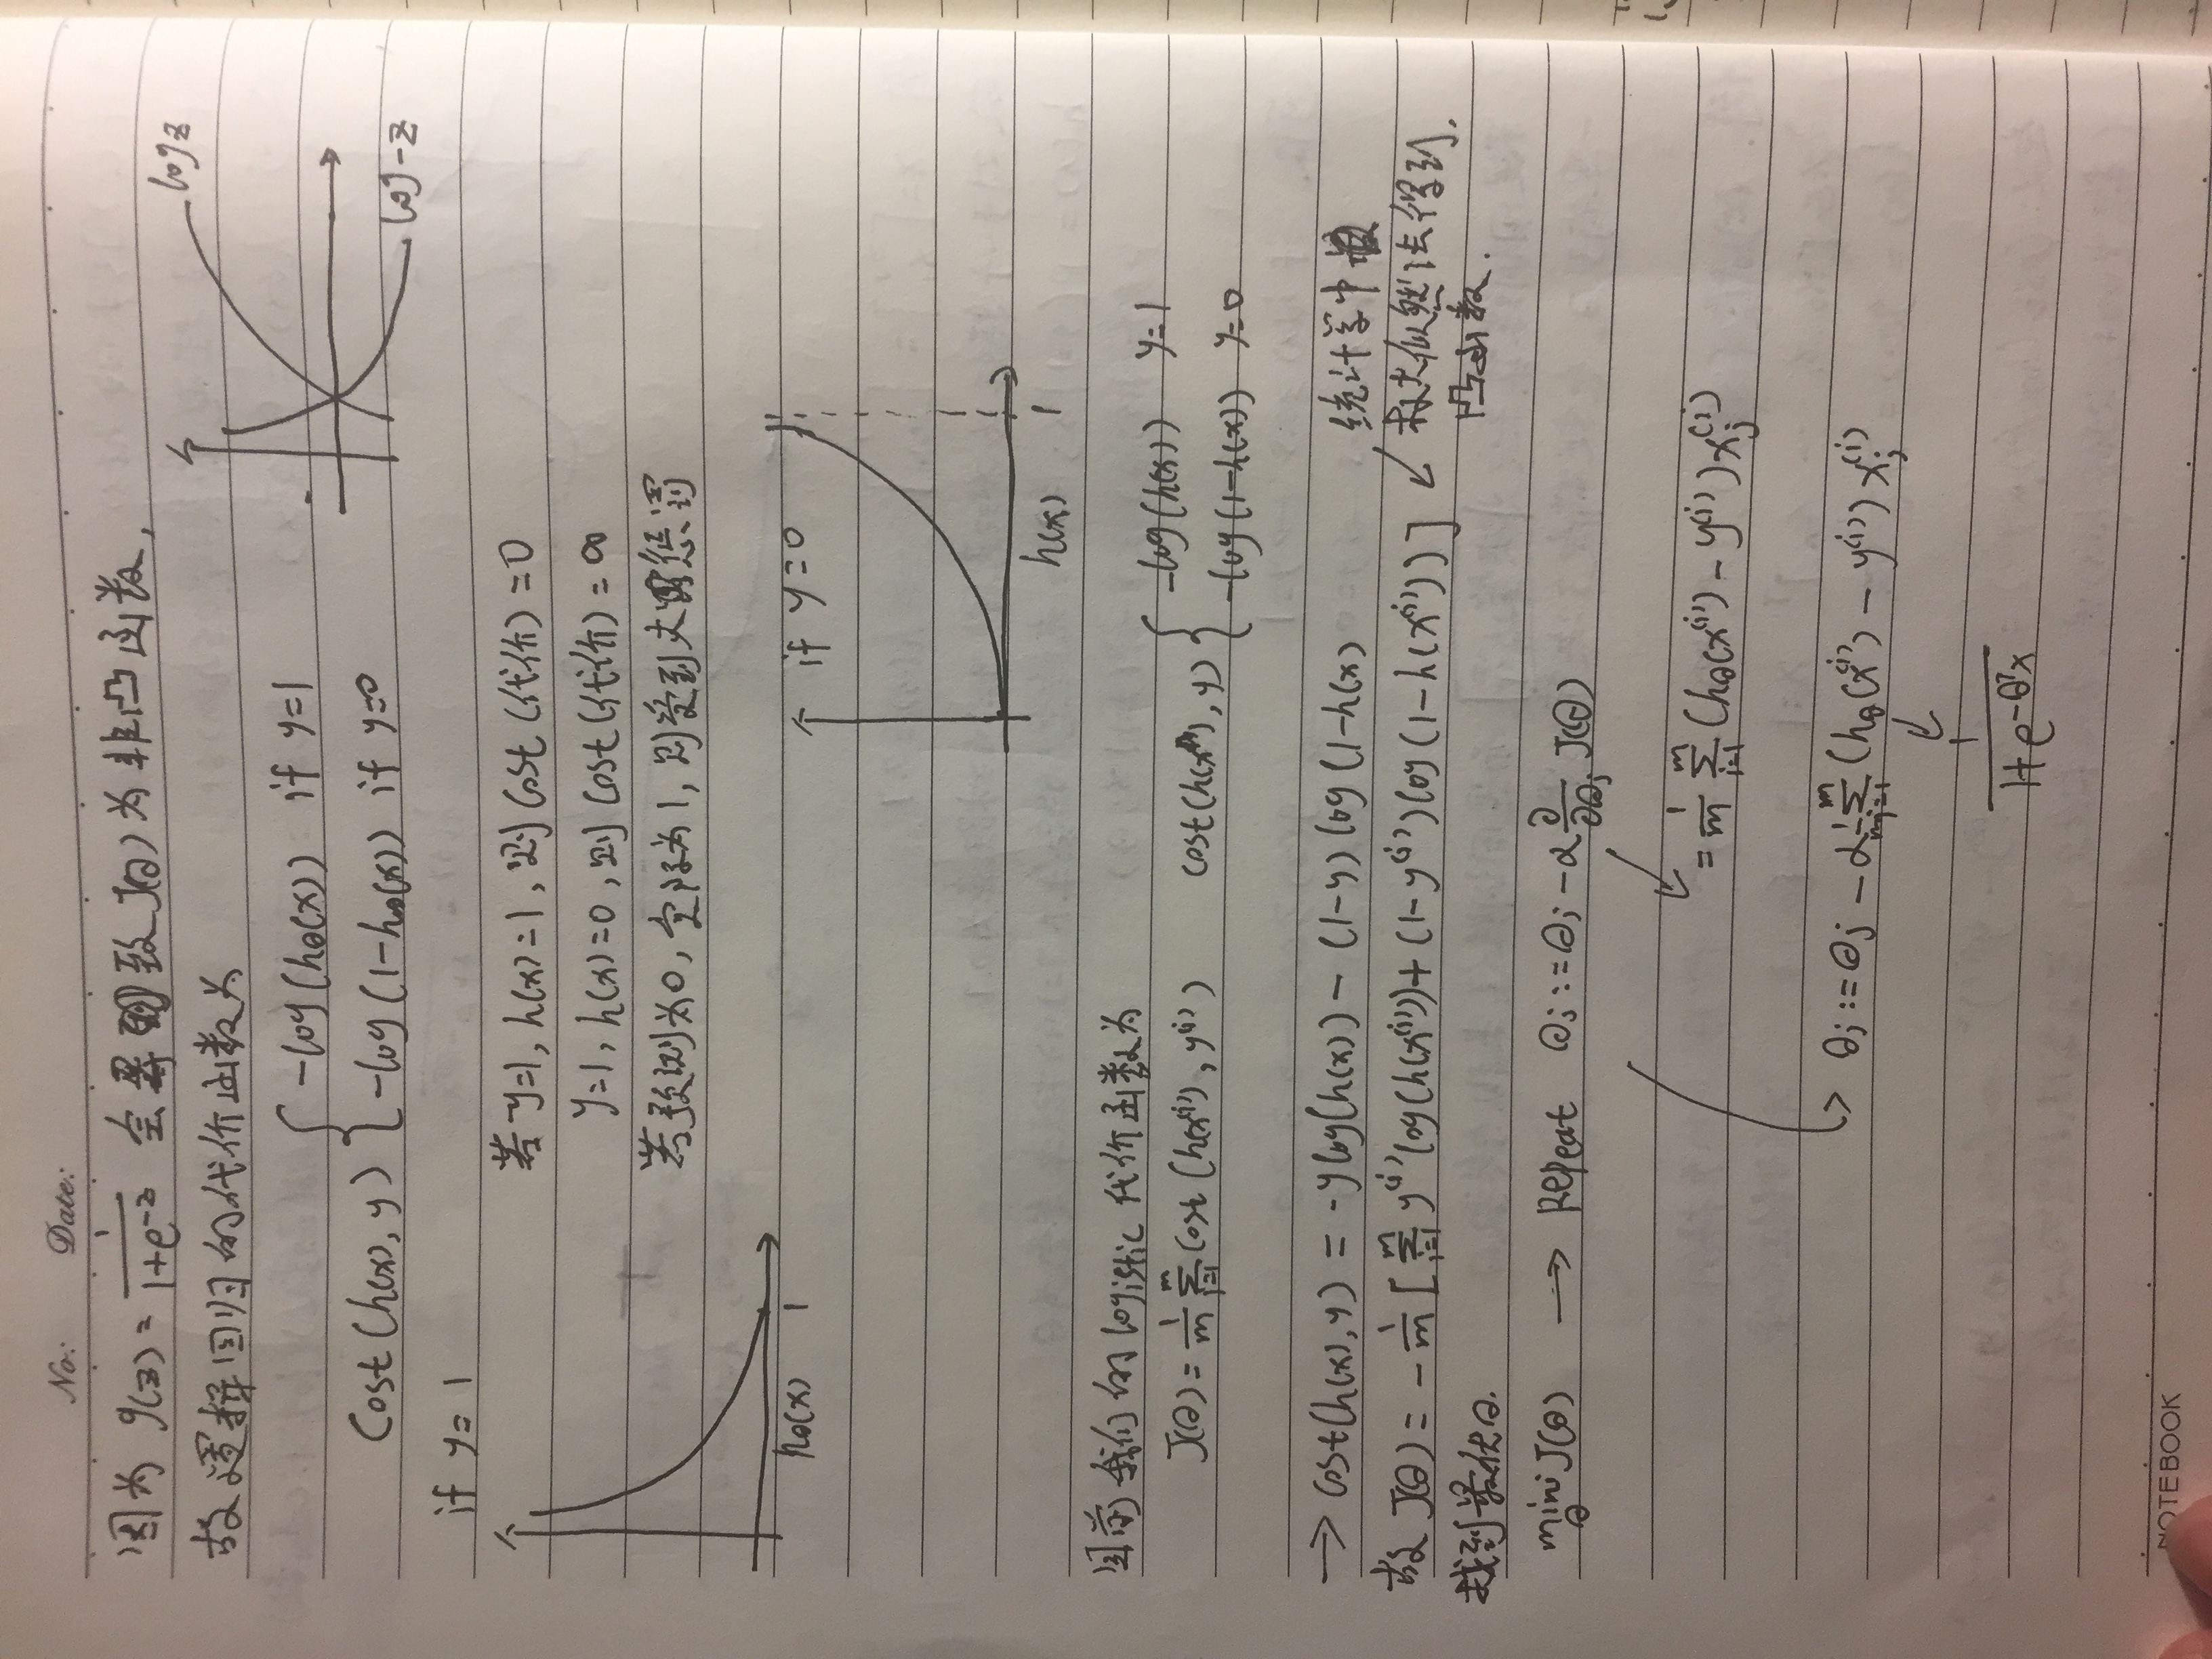 No: Date:
因为 g(z) = 1/(1+e^{-z}) 会导致 J(θ) 为非凸函数,
故逻辑回归的代价函数为
log z
Cost(h(x), y) { -log(hθ(x)) if y=1
-log(1-hθ(x)) if y=0
log-z
if y=1
若 y=1, h(x)=1, 则 Cost(代价)=0
y=1, h(x)=0, 则 Cost(代价)=∞
若预测为0, 实际为1, 则受到大惩罚
hθ(x) 1
if y=0
h(x) 1
我们的 logistic 代价函数为
J(θ) = 1/m Σ_{i=1}^{m} Cost(h(x^{(i)}), y^{(i)})
cost(h(x), y) { -log(h(x)) y=1
-log(1-h(x)) y=0
→ cost(h(x), y) = -y log(h(x)) - (1-y) log(1-h(x)
故 J(θ) = -1/m [Σ_{i=1}^{m} y^{(i)} log(h(x^{(i)})) + (1-y^{(i)}) log(1-h(x^{(i)}))]
统计学中
极大似然法得到.
凸函数.
找到最优θ.
min_θ J(θ) → Repeat θ_j := θ_j - α ∂/∂θ_j J(θ)
= 1/m Σ_{i=1}^{m} (hθ(x^{(i)}) - y^{(i)}) x_j^{(i)}
θ_j := θ_j - α 1/m Σ_{i=1}^{m} (hθ(x^{(i)}) - y^{(i)}) x_j^{(i)}
1/(1+e^{-θ^T x})
NOTEBOOK